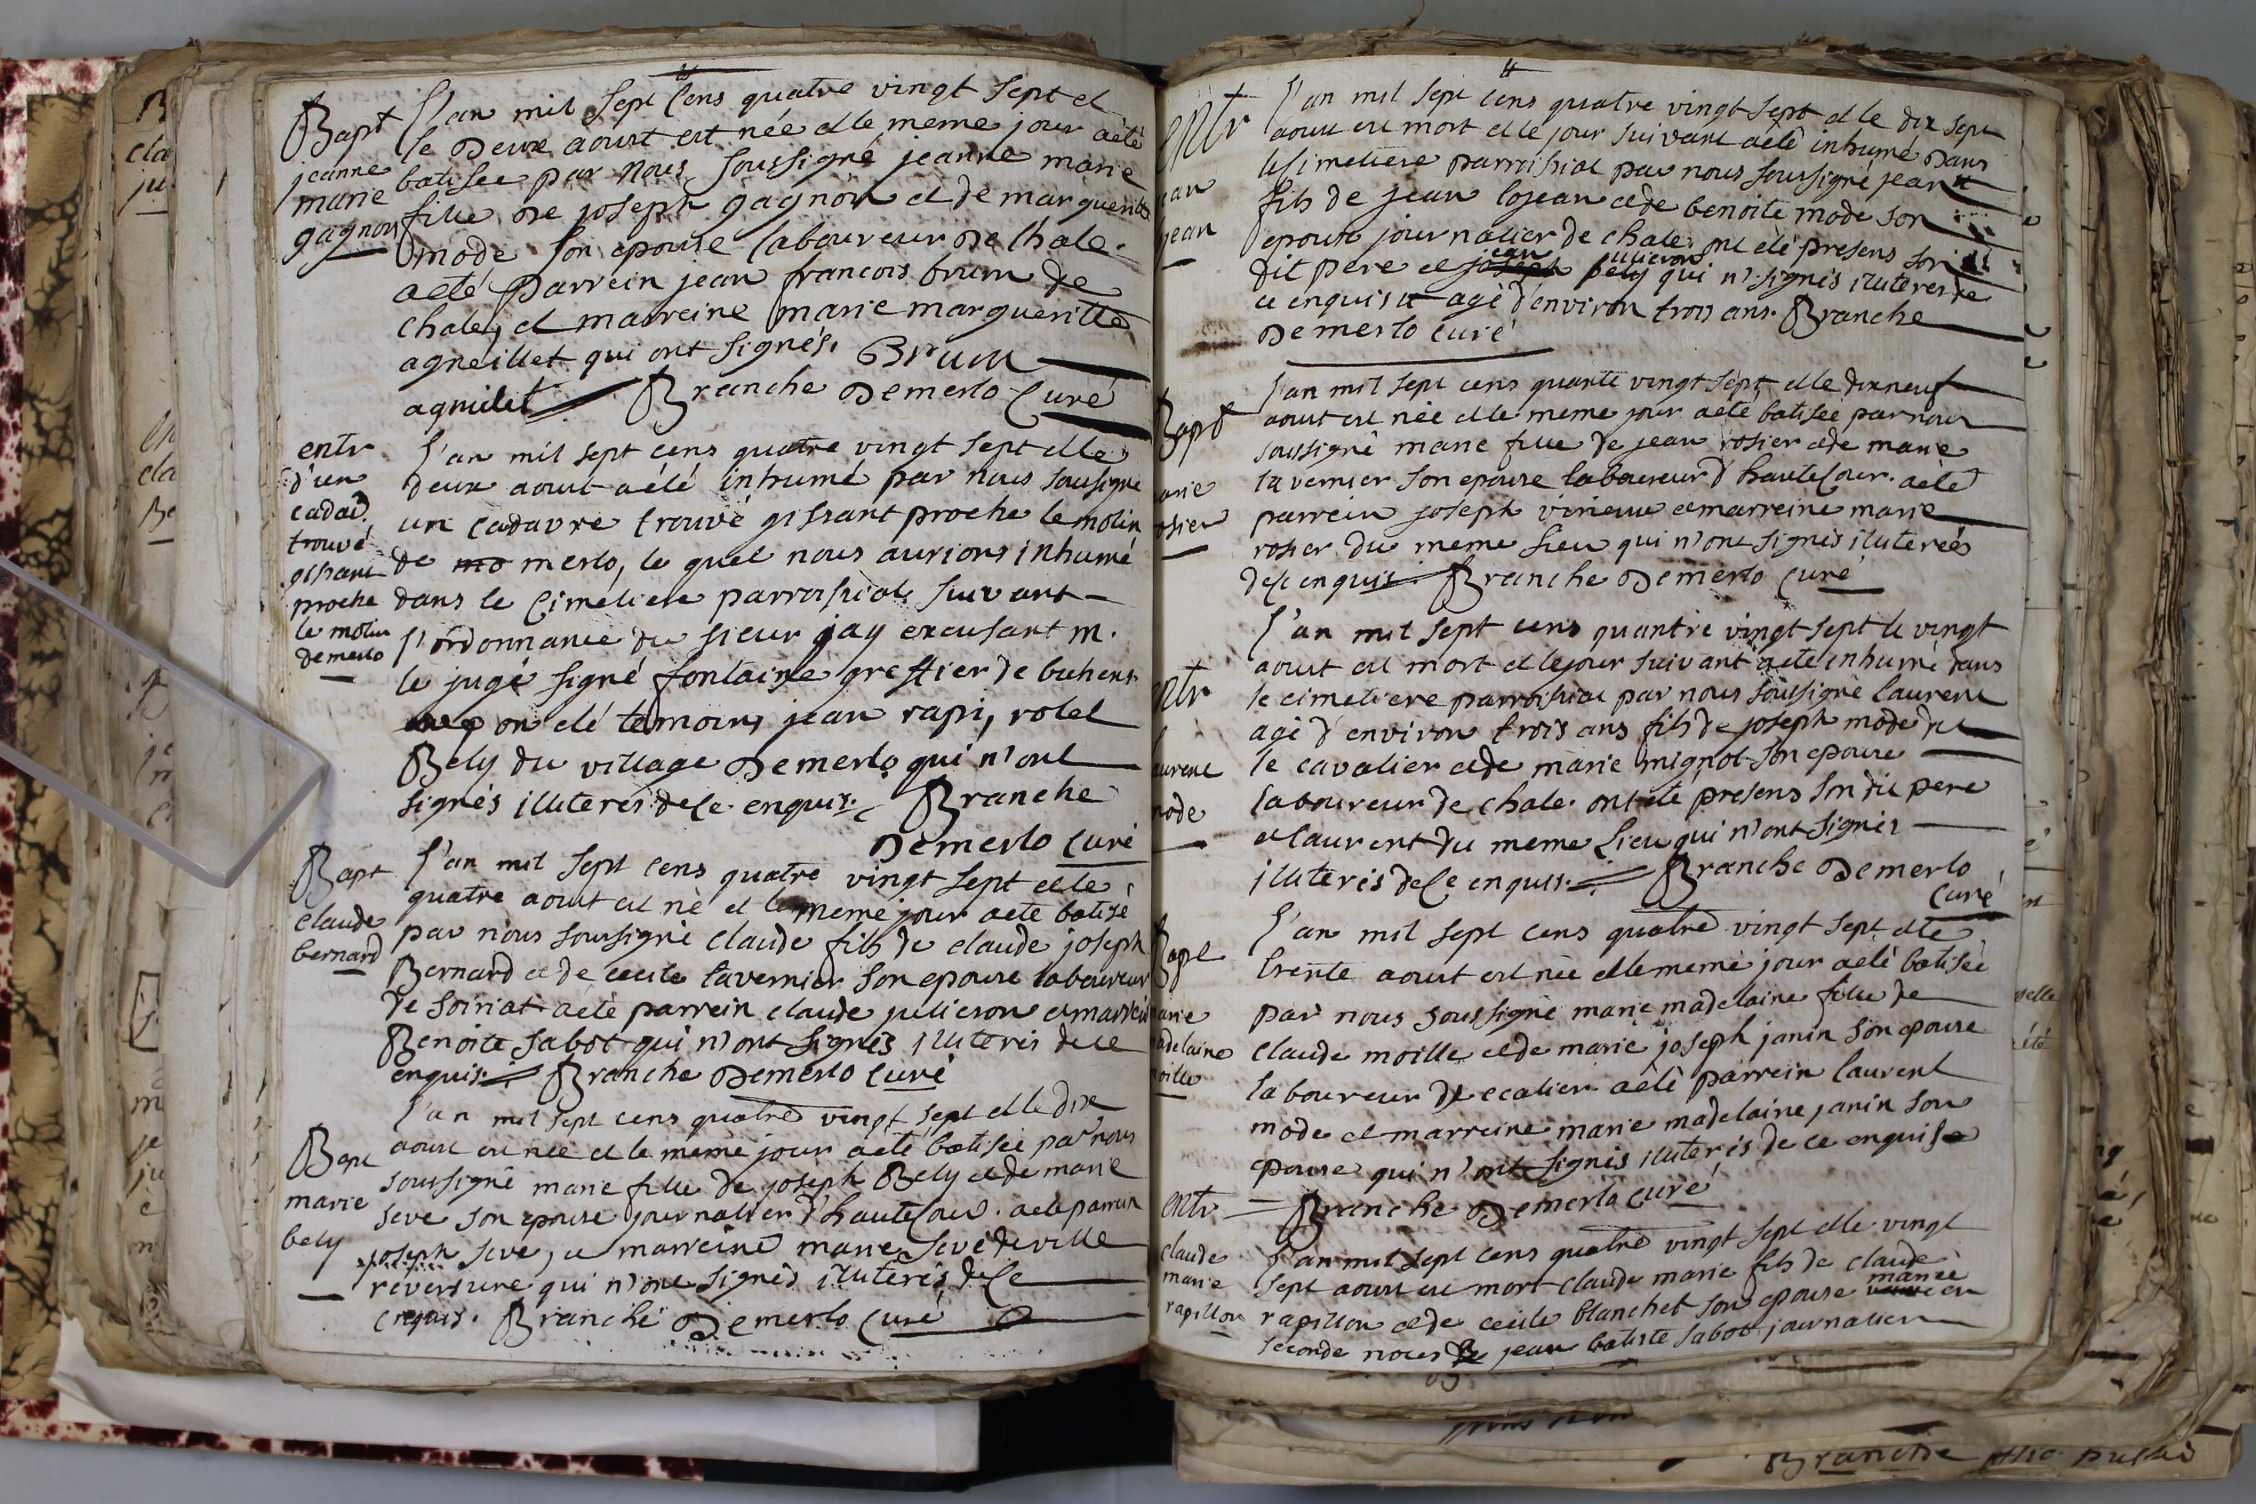 Bapt
jeanne
marie
gagnon
L'an mil sept cens quatre vingt sept et
le deux aoust est née et le meme jour a été
batisee par nous soussigné jeanne marie
fille de joseph gagnon et de marguerite
mode son epouse laboureur de chale.
a eté parrein jean francois brum de
chale, et marreine marie margueritte
agneillet qui ont signés. Brum
agnielet Branche Demerlo Curé
entr
d'un
cadav
trouvé
gissant
proche
le molin
demerlo
L'an mil sept cens quatre vingt sept et le
deux aout a été inhumé par nous soussigné
un cadavre trouvé gissant proche le molin
de mo merlo, le quel nous aurions inhumé
dans le Cimetiere parroissial suivant
l'ordonnance du sieur jay excusant m.
le juge signé fontaine greffier de buhens
on eté temoins jean rapi, rolet
Bely du village Demerlo qui n'ont
signés illiteres de ce enquis. Branche
Demerlo Curé
Bapt
claude
bernard
L'an mil sept cens quatre vingt sept et le
quatre aout est né et le meme jour a eté batisé
par nous soussigné claude fils de claude joseph
Bernard et de cecile tavernier son epouse laboureur
de soiriat a eté parrein claude julieron et marrein
Benoite sabot qui n'ont signés illiteris de ce
enquis. Branche Demerlo Curé
Bapt
marie
bely
L'an mil sept cens quatre vingt sept et le dix
aout est née et le meme jour a eté batisée par nous
soussigné marie fille de joseph Bely et de marie
seve son epouse journalier d'hautecour. a eté parrein
joseph seve, et marreine marie seve de ville
reversure qui n'ont signés illiterés de ce
enquis. Branche Demerlo Curé
entr
jean
L'an mil sept cens quatre vingt sept et le dix sept
aout est mort et le jour suivant a eté inhumé dans
le simetiere parroissial par nous soussigné jean
fils de jean lojean et de benoite mode son
epouse journalier de chale. ont eté presens son
dit pere et joseph jean julieron bely qui n'signés illiteres de
ce enquis agé d'environ trois ans. Branche
Demerlo Curé
Bapt
marie
rosier
L'an mil sept cens quante vingt sept et le dixneuf
aout est née et le meme jour a eté batisée par nous
soussigné marie fille de jean rosier et de marie
tavernier son epouse laboureur d'hautecour. a eté
parrein joseph et marreine marie
rosier du meme lieu qui n'ont signés illiterés
de ce enquis. Branche Demerlo Curé
entr
laurent
mode
L'an mil sept cens quantre vingt sept le vingt
aout est mort et le jour suivant a eté inhumé dans
le cimetiere parroissial par nous soussigné laurent
agé d'environ trois ans fils de joseph mode dit
le cavalier et de marie mignot son epouse
laboureur de chale. ont eté presens son dit pere
et laurent du meme lieu qui n'ont signés
illiterés de ce enquis. Branche Demerlo
Curé
Bapt
marie
madelaine
moille
L'an mil sept cens quatre vingt sept et le
trente aout est née et le meme jour a eté batisée
par nous soussigné marie madelaine fille de
claude moille et de marie joseph janin son epouse
laboureur de ecalier. a eté parrein laurent
mode et marreine marie madelaine janin son
epouse qui n'ont signés illiterés de ce enquise
Branche Demerlo Curé
entr
claude
marie
rapillon
L'an mil sept cens quatre vingt sept et le vingt
sept aout est mort claude marie fils de claude
rapillon et de cecile blanchet son epouse mariée en
seconde noces de jean batiste sabot journalier
Branche